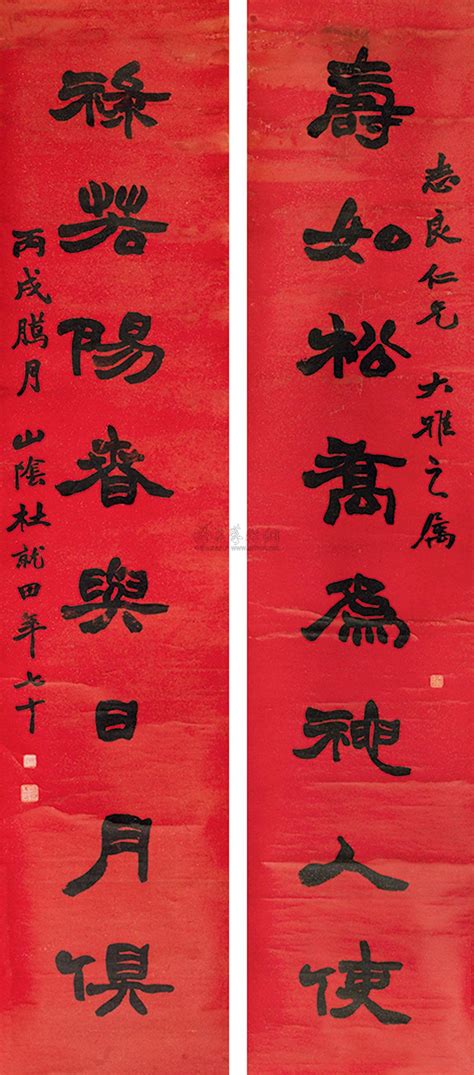 壽如松喬為神人使
志良仁兄 大雅之属
祿若陽春與日月俱
丙戌臘月 山陰杜就田年七十